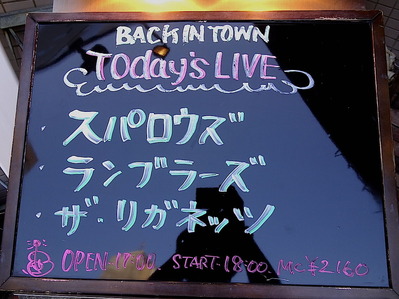 BACK IN TOWN
TODay's LIVE
・スパロウズ
・ランブラーズ
・ザ・リガネッツ
OPEN-17:00. START-18:00. MC ¥2160